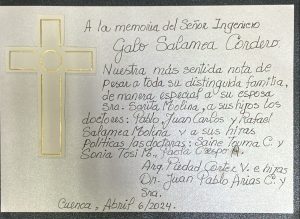 A la memoria del Señor Ingeniero
Galo Salamea Cordero.
Nuestra más sentida nota de
pesar a toda su distinguida familia,
de manera especial a su esposa
Sra. Sarita Molina, a sus hijos los
doctores: Pablo, Juan Carlos y Rafael
Salamea Molina y a sus hijas
Políticas las doctoras: Saine Touma C. y
Sonia Tosi M., Paola Crespo A.
Arq. Piedad Cortez V. e hijas
Dr. Juan Pablo Arias C. y
Sra.
Cuenca, Abril 6/2024.